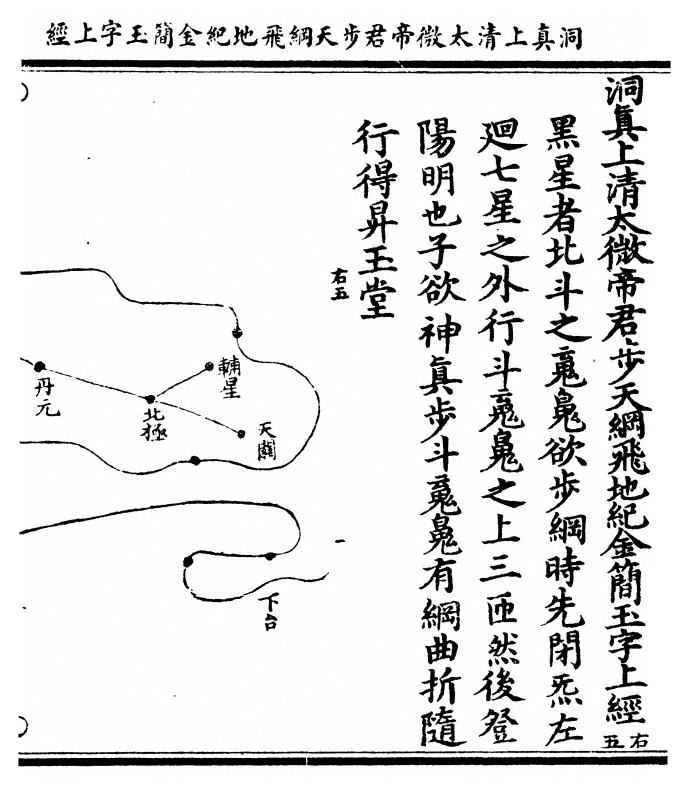 洞真上清太微帝君步天綱飛地紀金簡玉字上經
洞眞上清太微帝君步天綱飛地紀金簡玉字上經
右五
黑星者北斗之魂魄欲步綱時先閉炁左
廻七星之外行斗魂魄之上三匝然後登
陽明也子欲神眞步斗魂魄有綱曲折隨
行得昇玉堂
右五
天關
輔星
北極
丹元
下台